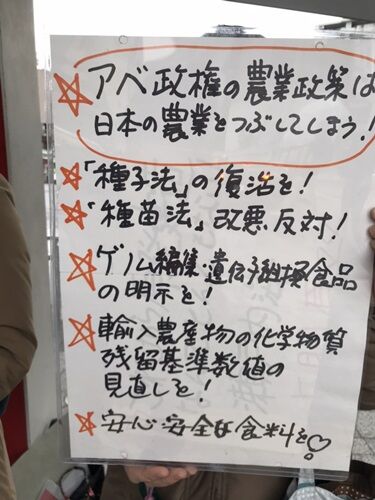 ☆アベ政権の農業政策は
日本の農業をつぶしてしまう!
☆「種子法」の復活を!
☆「種苗法」改悪反対!
☆ゲノム編集・遺伝子組換食品
の明示を!
☆輸入農産物の化学物質
残留基準数値の
見直しを!
☆安心安全な食料を♡!